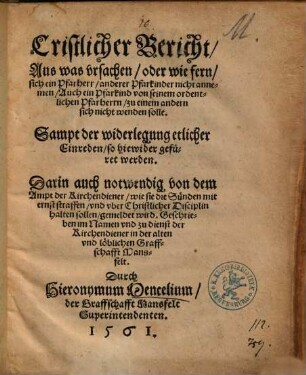 Cristlicher Bericht/
Aus was vrsachen/ oder wie fern/
sich ein Pfarherr/ anderer Pfarkinder nicht anne-
men/ Auch ein Pfarkind von seinem ordent-
lichen Pfarherrn/ zu einem andern
sich nicht wenden solle.
Sampt der widerlegung etlicher
Einreden/ so hiewider gefü-
ret werden.
Darin auch notwendig von dem
Ampt der Kirchendiener/ wie sie die Sünden mit
ernst straffen/ vnd vber Christlicher Disciplin
halten sollen/ gemeldet wird. Geschrie-
ben im Namen vnd zu dienst der
Kirchendiener in der alten
vnd löblichen Graff-
schafft Mans-
felt.
Durch
Hieronymum Mencelium/
der Graffschafft Mansfelt
Superintendenten.
1561.